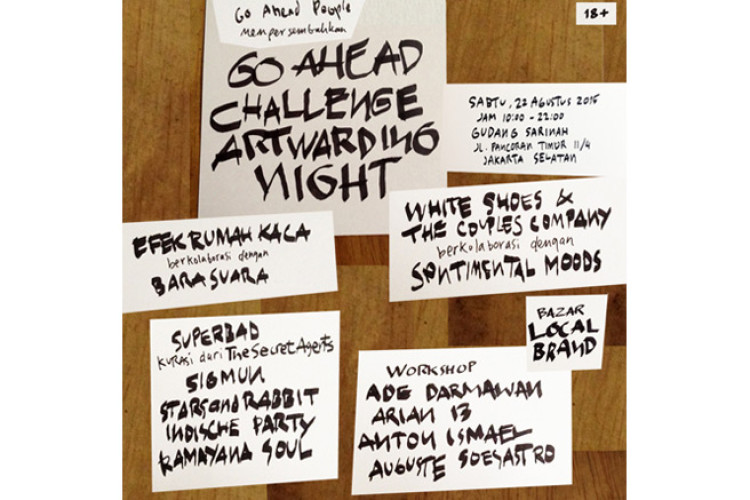 Go Ahead People
mempersembahkan
GO AHEAD
CHALLENGE
ARTWARDING
NIGHT
18+
SABTU, 22 AGUSTUS 2015
JAM 10:00 - 22:00
GUDANG SARINAH
JL. PANCORAN TIMUR II/4
JAKARTA SELATAN
EFEK RUMAH KACA
berkolaborasi dengan
BARASUARA
WHITE SHOES &
THE COUPLES COMPANY
berkolaborasi dengan
SENTIMENTAL MOODS
SUPERBAD
kurasi dari The Secret Agents
SIGMUN
STARS and RABBIT
INDISCHE PARTY
RAMAYANA SOUL
BAZAR
LOCAL
BRAND
WORKSHOP
ADE DARMAWAN
ARIAN 13
ANTON ISMAEL
AUGUSTE SOESASTRO